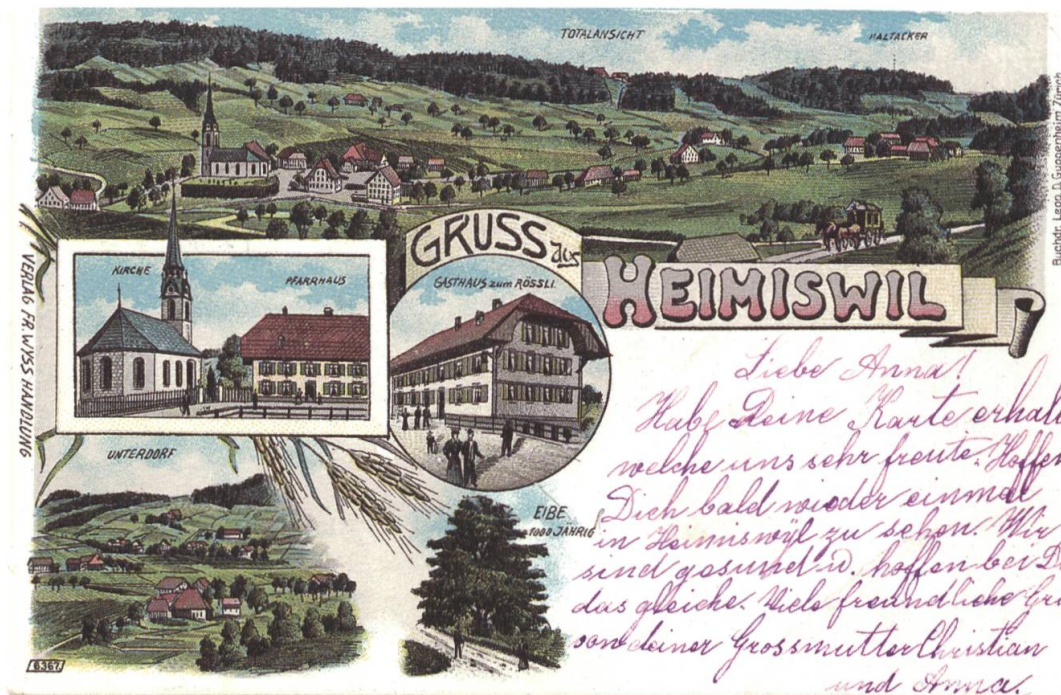 TOTALANSICHT
HALTACKER
Buchdr. Leop. D. Guggenheim, Zürich
GRUSS aus
HEIMISWIL
KIRCHE
PFARRHAUS
GASTHAUS zum RÖSSLI.
VERLAG FR. WYSS HANDLUNG
UNTERDORF
EIBE
1000 JÄHRIG
6367
Liebe Anna!
Habe Deine Karte erhal
welche uns sehr freute. Hoffen
Dich bald wieder einmal
in Heimiswyl zu sehen. Wir
sind gesund u. hoffen bei D
das gleiche. Viele freundliche Gr
von deiner Grossmutter Christian
und Anna.